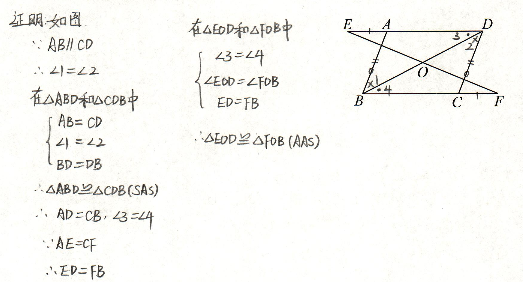 证明：如图
∵ AB∥CD
∴ ∠1=∠2
在△ABD和△CDB中
AB=CD
∠1=∠2
BD=DB
∴△ABD≌△CDB(SAS)
∴ AD=CB，∠3=∠4
∵AE=CF
∴ED=FB
在△EOD和△FOB中
∠3=∠4
∠EOD=∠FOB
ED=FB
∴△EOD≌△FOB(AAS)
E A D
3 2
O
1 4
B C F